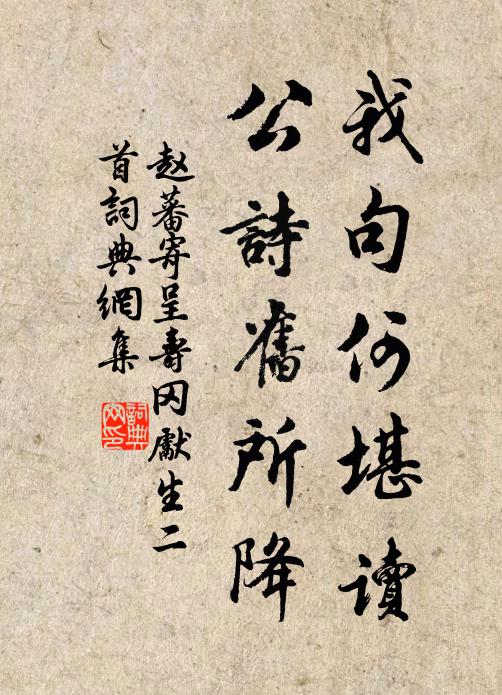 我句何堪讀
公詩舊所降
赵蕃寄呈壽冈獻生二
首詞典網集
詞典
网印